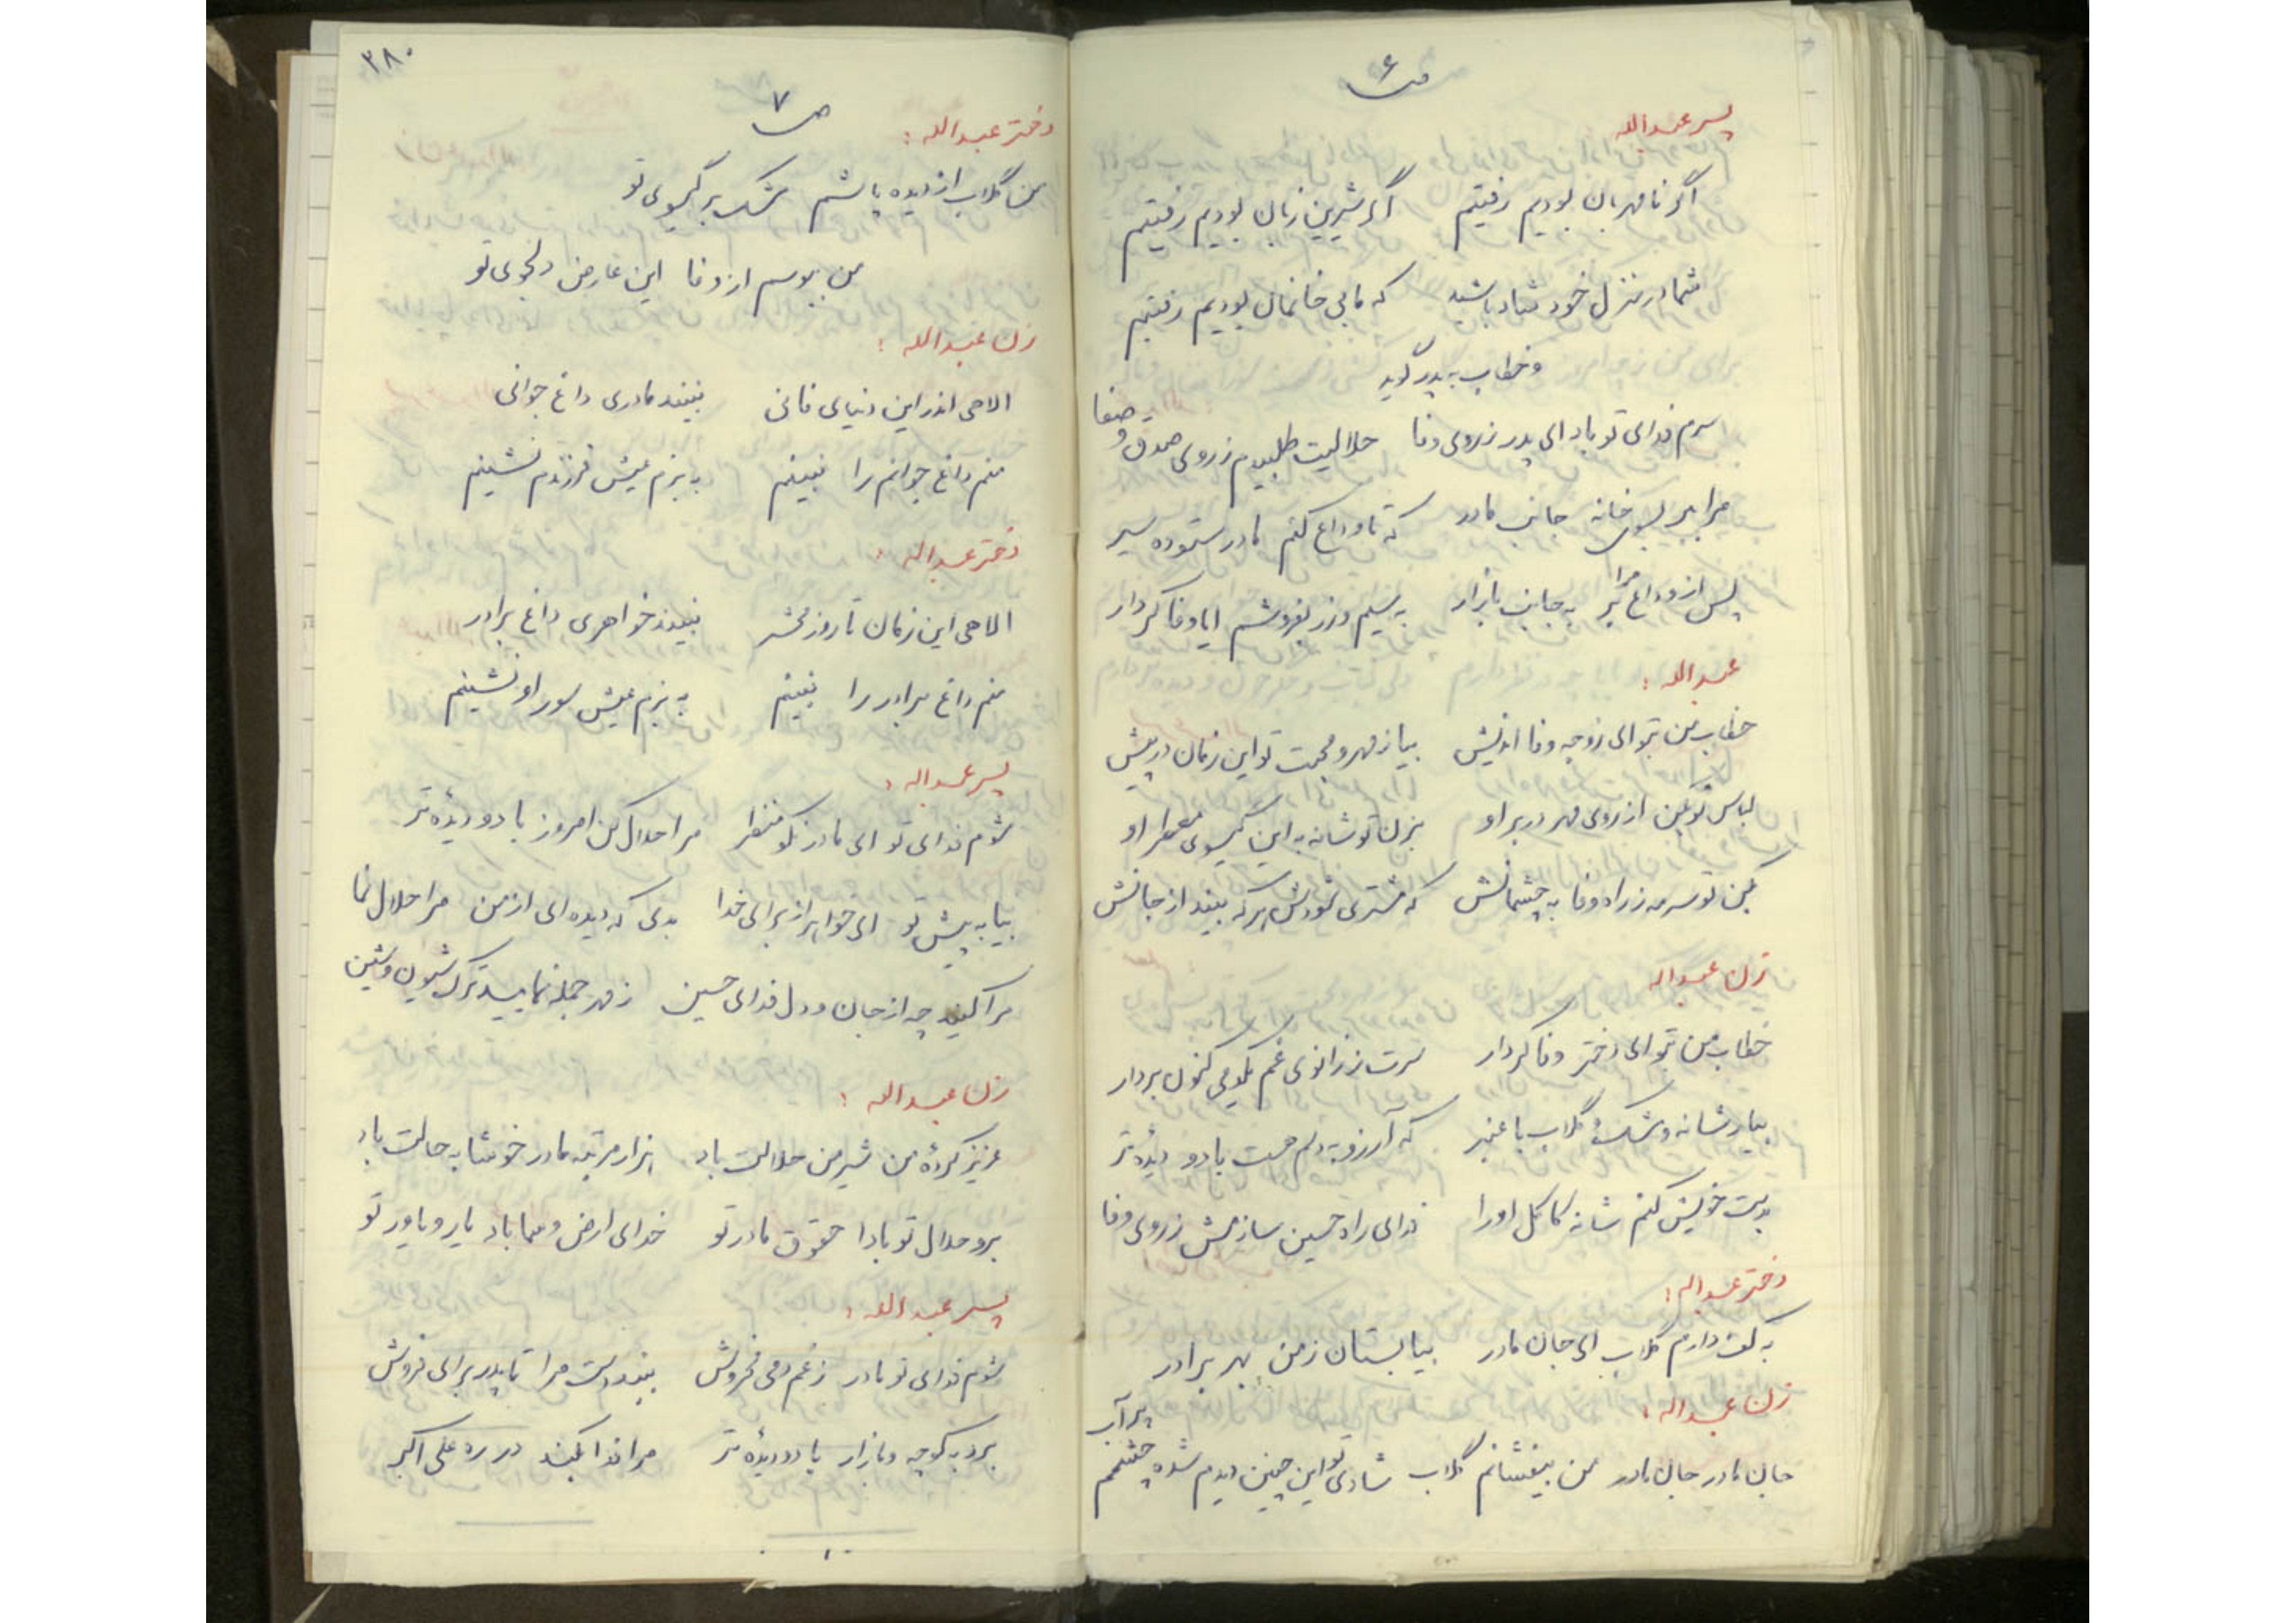 ص ۶
پسر عبدالله
اگر نامهربان بودیم رفتیم اگر شیرین زبان بودیم رفتیم
شما در منزل خود شاد باشید که ما بی خانمان بودیم رفتیم
و خطاب به پدر گوید
سرم فدای تو باد ای پدر ز روی وفا حلالیت طلبیدم ز روی صدق و صفا
مرا ببر بسوی خانه جانب مادر که تا وداع کنم مادر ستوده سیر
پس از وداع مرا بر به جانب بازار به سیم و زر بفروشم ایا وفا کردار
عبدالله :
خطاب من بتو ای زوجه وفا اندیش بیا ز مهر و محبت تو این زمان در پیش
لباس نو بکن از روی مهر در بر او بزن تو شانه به این گیسوی معطر او
بکن تو سرمه ز راه وفا به چشمانش که مشتری شودش هر که بیند از جانش
زن عبداله
خطاب من بتو ای دختر وفا کردار سرت ز زانوی غم بکدمی کنون بردار
بیار شانه و مشک و گلاب با عنبر که آرزو به دلم هست با دو دیدهٔ تر
بدست خویش کنم شانه کاکل او را فدای راه حسین سازمش ز روی وفا
دختر عبداله :
به کف دارم گلاب ای جان مادر بیا بستان ز من بهر برادر
زن عبداله :
جان مادر جان مادر من بیفشانم گلاب شادی تو این چنین دیدم شده چشمم پر آب
۳۸۰
ص ۷
دختر عبدالله :
من گلاب از دیده پاشم مشک بر گیسوی تو
من ببوسم از وفا این عارض دلجوی تو
زن عبدالله :
الاهی اندر این دنیای فانی نبیند مادری داغ جوانی
منم داغ جوانم را نبینم به بزم عیش فرزندم نشینم
دختر عبداله :
الاهی این زمان تا روز محشر نبیند خواهری داغ برادر
منم داغ برادر را نبینم به بزم عیش سور او نشینم
پسر عبداله :
شوم فدای تو ای مادر نکو منظر مرا حلال کن امروز با دو دیدهٔ تر
بیا به پیش تو ای خواهر از برای خدا بدی که دیده‌ای از من مرا حلال نما
مرا کنید چه از جان و دل فدای حسین ز مهر جمله نمایید ترک شیون و شین
زن عبداله :
عزیز کردهٔ من شیر من حلالت باد هزار مرتبه مادر خوشا به حالت باد
برو حلال تو بادا حقوق مادر تو خدای ارض و سما باد یار و یاور تو
پسر عبدالله :
شوم فدای تو مادر ز غم دمی مخروش ببند دست مرا تا پدر برای فروش
برد به کوچه و بازار با دو دیدهٔ تر مرا فدا بکند در ره علی اکبر